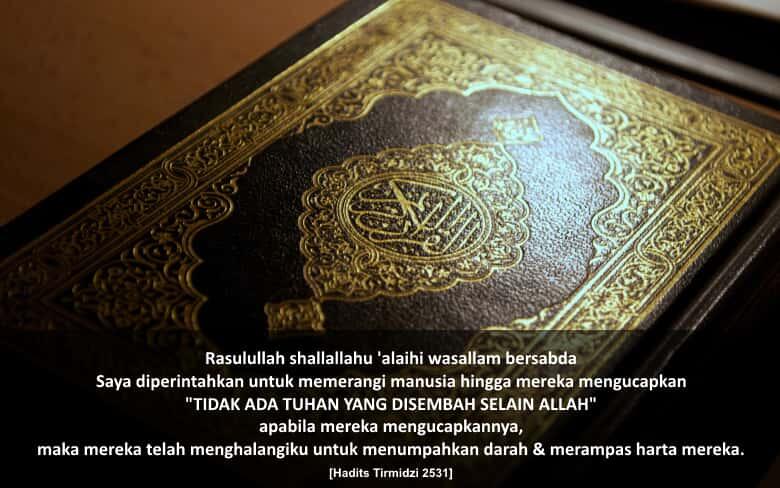 Rasulullah shallallahu 'alaihi wasallam bersabda
Saya diperintahkan untuk memerangi manusia hingga mereka mengucapkan
"TIDAK ADA TUHAN YANG DISEMBAH SELAIN ALLAH"
apabila mereka mengucapkannya,
maka mereka telah menghalangiku untuk menumpahkan darah & merampas harta mereka.
[Hadits Tirmidzi 2531]